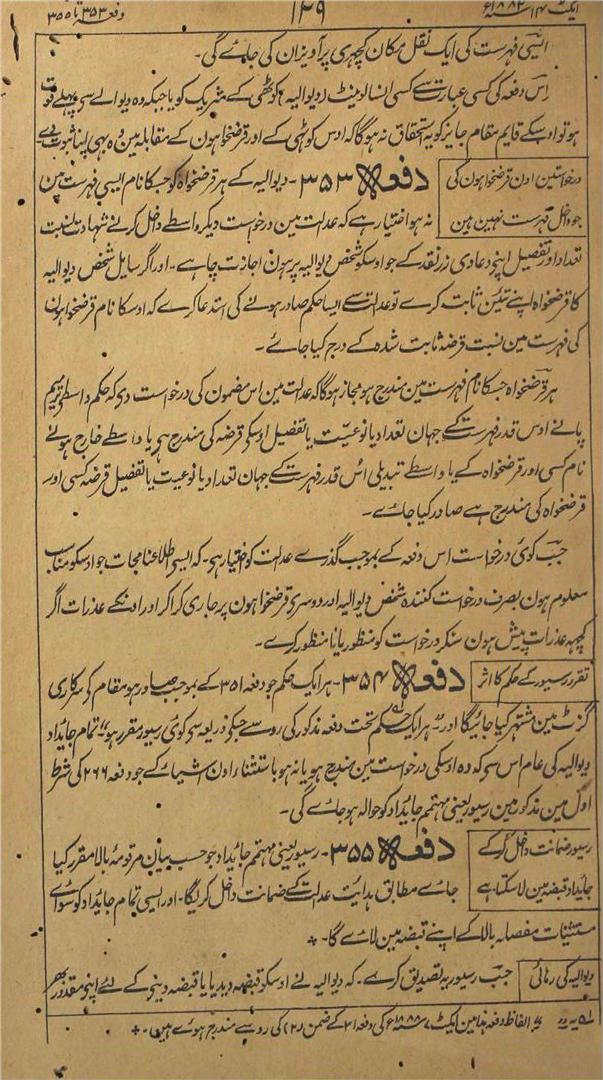 ایکٹ ۱۴ سنہ ۱۸۸۲ع
۱۴۹
دفعہ ۳۵۳ تا ۳۵۵
ایسی فہرست کی ایک نقل مکان کچہری پر آویزان کی جائے گی۔
اِس دفعہ کی کسی عبارت سے کسی انسالونٹ دیوالیہ کوٹھی کے شریک کو یا جبکہ وہ دیوالے سے پہلے فوت
ہو تو اوسکے قایم مقام جایز کو یہ استحقاق نہ ہوگا کہ اوس کوٹھی کے اور قرضخواہون کے مقابلہ مین وہ بھی اپنا ثبوت دے۔
درخواستین اون قرضخواہون کی
جو داخل فہرست نہین ہین
دفعہ ۳۵۳۔ دیوالیہ کے ہر قرضخواہ کو جسکا نام ایسی فہرست مین
نہ ہو اختیار ہے کہ عدالت مین درخواست دیکر واسطے داخل کرنے شہادت نسبت
تعداد اور تفصیل اپنے دعاوی زر نقد کے جو اوسکو شخص دیوالیہ پر ہون اجازت چاہے۔ اور اگر سایل شخص دیوالیہ
کا قرضخواہ اپنے تئین ثابت کرے تو عدالت سے ایسا حکم صادر ہونے کی استدعا کرے کہ اوسکا نام قرضخواہون
کی فہرست مین نسبت قرضہ ثابت شدہ کے درج کیا جائے۔
ہر قرضخواہ جسکا نام فہرست مین مندرج ہو مجاز ہوگا کہ عدالت مین اس مضمون کی درخواست دی کہ حکم واسطے ترمیم
پانے اوس قدر فہرست کے جہان تعداد یا نوعیت یا تفصیل اوسکی قرضہ کی مندرج ہی یا واسطے خارج ہونے
نام کسی اور قرضخواہ کے یا واسطے تبدیلی اُس قدر فہرست کے جہان تعداد یا نوعیت یا تفصیل قرضہ کسی اور
قرضخواہ کی مندرج ہے صادر کیا جائے۔
جب کوئی درخواست اس دفعہ کے بموجب گذرے عدالت کو اختیار ہی۔ کہ ایسی اطلاعنامجات جو اوسکو مناسب
معلوم ہون بصرف درخواست کنندہ شخص دیوالیہ اور دوسری قرضخواہون پر جاری کرا کر اور اونکے عذرات اگر
کچہہ عذرات پیش ہون سنکر درخواست کو منظور یا نامنظور کرے۔
تقرر رسیور کے حکم کا اثر
دفعہ ۳۵۴۔ ہر ایک حکم جو دفعہ ۳۵۱ کے بموجب صادر ہو مقام کی سرکاری
گزٹ مین مشتہر کیا جائیگا اور ہر ایک حکم تحت دفعہ مذکور کی رو سے جسکی ذریعہ سی کوئی رسیور مقرر ہو تمام جایداد
دیوالیہ کی عام اس سی کہ وہ اوسکی درخواست مین مندرج ہو یا نہ ہو باستثنار اون اشیائے کے جو دفعہ ۲۶۶ کی شرط
اول مین مذکور ہین رسیور یعنی مہتمم جایداد کو حوالہ ہو جاے گی۔
رسیور ضمانت داخل کرکے
جایداد قبضہ مین لا سکتا ہے
دفعہ ۳۵۵۔ رسیور یعنی مہتمم جایداد جو حسب بیان مرقومہ بالا مقرر کیا
جاے مطابق ہدایت عدالت کے ضمانت داخل کریگا۔ اور ایسی تمام جایداد کو سوائے
مستثنیات مفصلہ بالا کے اپنے قبضہ مین لاے گا۔
دیوالیہ کی رہائی
جب رسیور یہ تصدیق کرے۔ کہ دیوالیہ نے اوسکو قبضہ دیدیا یا قبضہ دینی کے لئے اپنی مقدور بھر
الفاظ دفعہ ہذا مین ایکٹ ۷ سنہ ۱۸۸۸ع کی دفعہ ۳۱ کے ضمن (۲) کی رو سے مندرج ہوے ہین۔